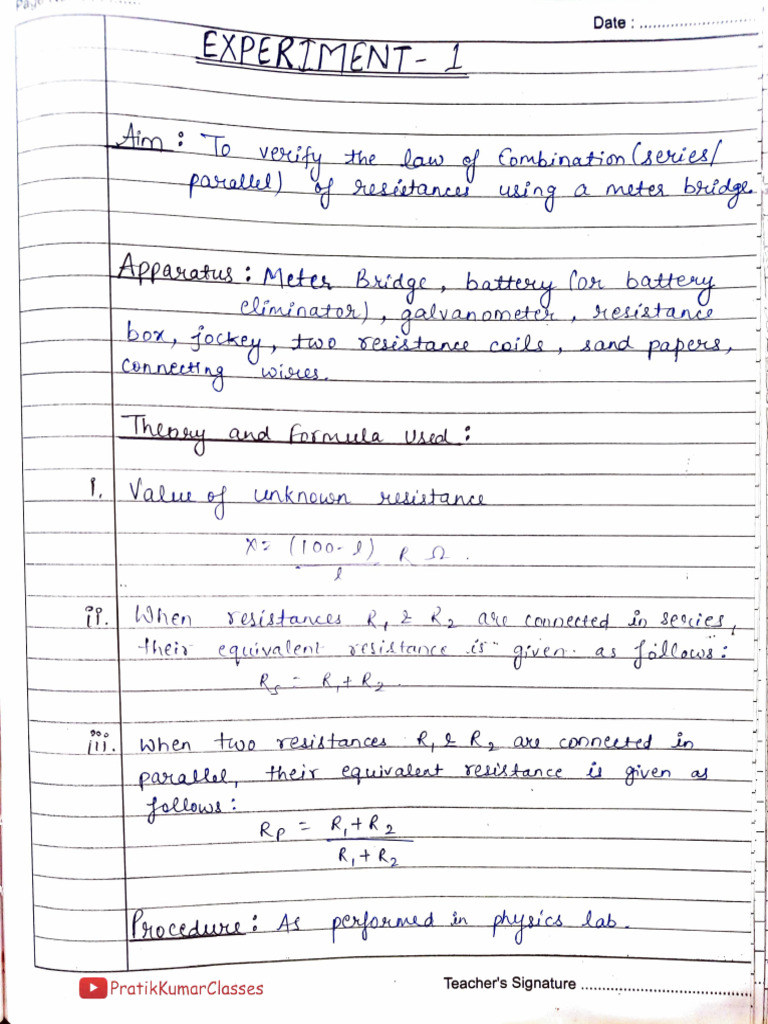 Page No
Date : ............................
EXPERIMENT - 1
Aim : To verify the law of Combination (series/
parallel) of resistances using a meter bridge.
Apparatus : Meter Bridge, battery (or battery
eliminator), galvanometer, resistance
box, jockey, two resistance coils, sand papers,
connecting wires.
Theory and Formula Used :
i. Value of unknown resistance
X = (100 - l) R Ω .
l
ii. When resistances R₁ & R₂ are connected in series,
their equivalent resistance is given as follows :
Rs = R₁ + R₂ .
iii. When two resistances R₁ & R₂ are connected in
parallel, their equivalent resistance is given as
follows :
Rp = R₁ + R₂
R₁ + R₂
Procedure : As performed in physics lab.
PratikKumarClasses
Teacher's Signature ........................................